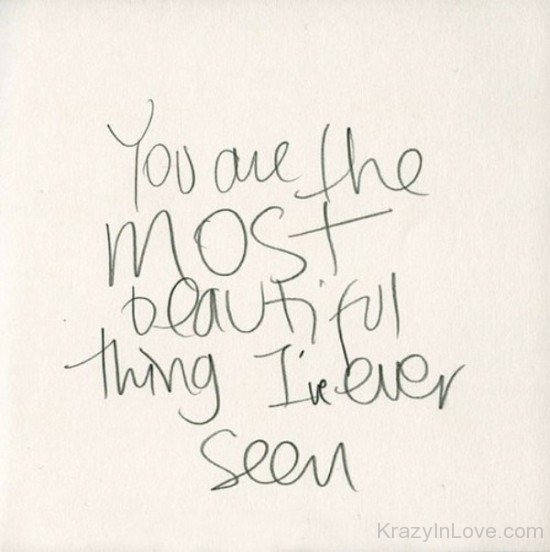 You are the
MOST
beautiful
thing I've ever
seen
KrazyInLove.com